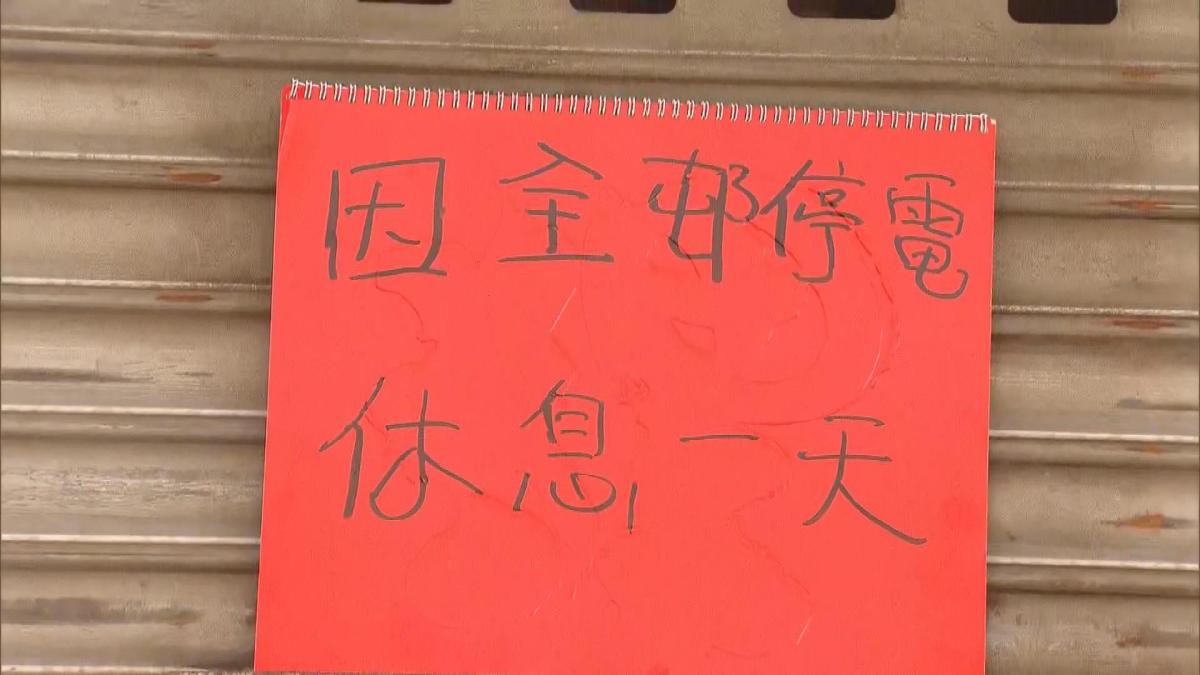 因全部停電
休息一天